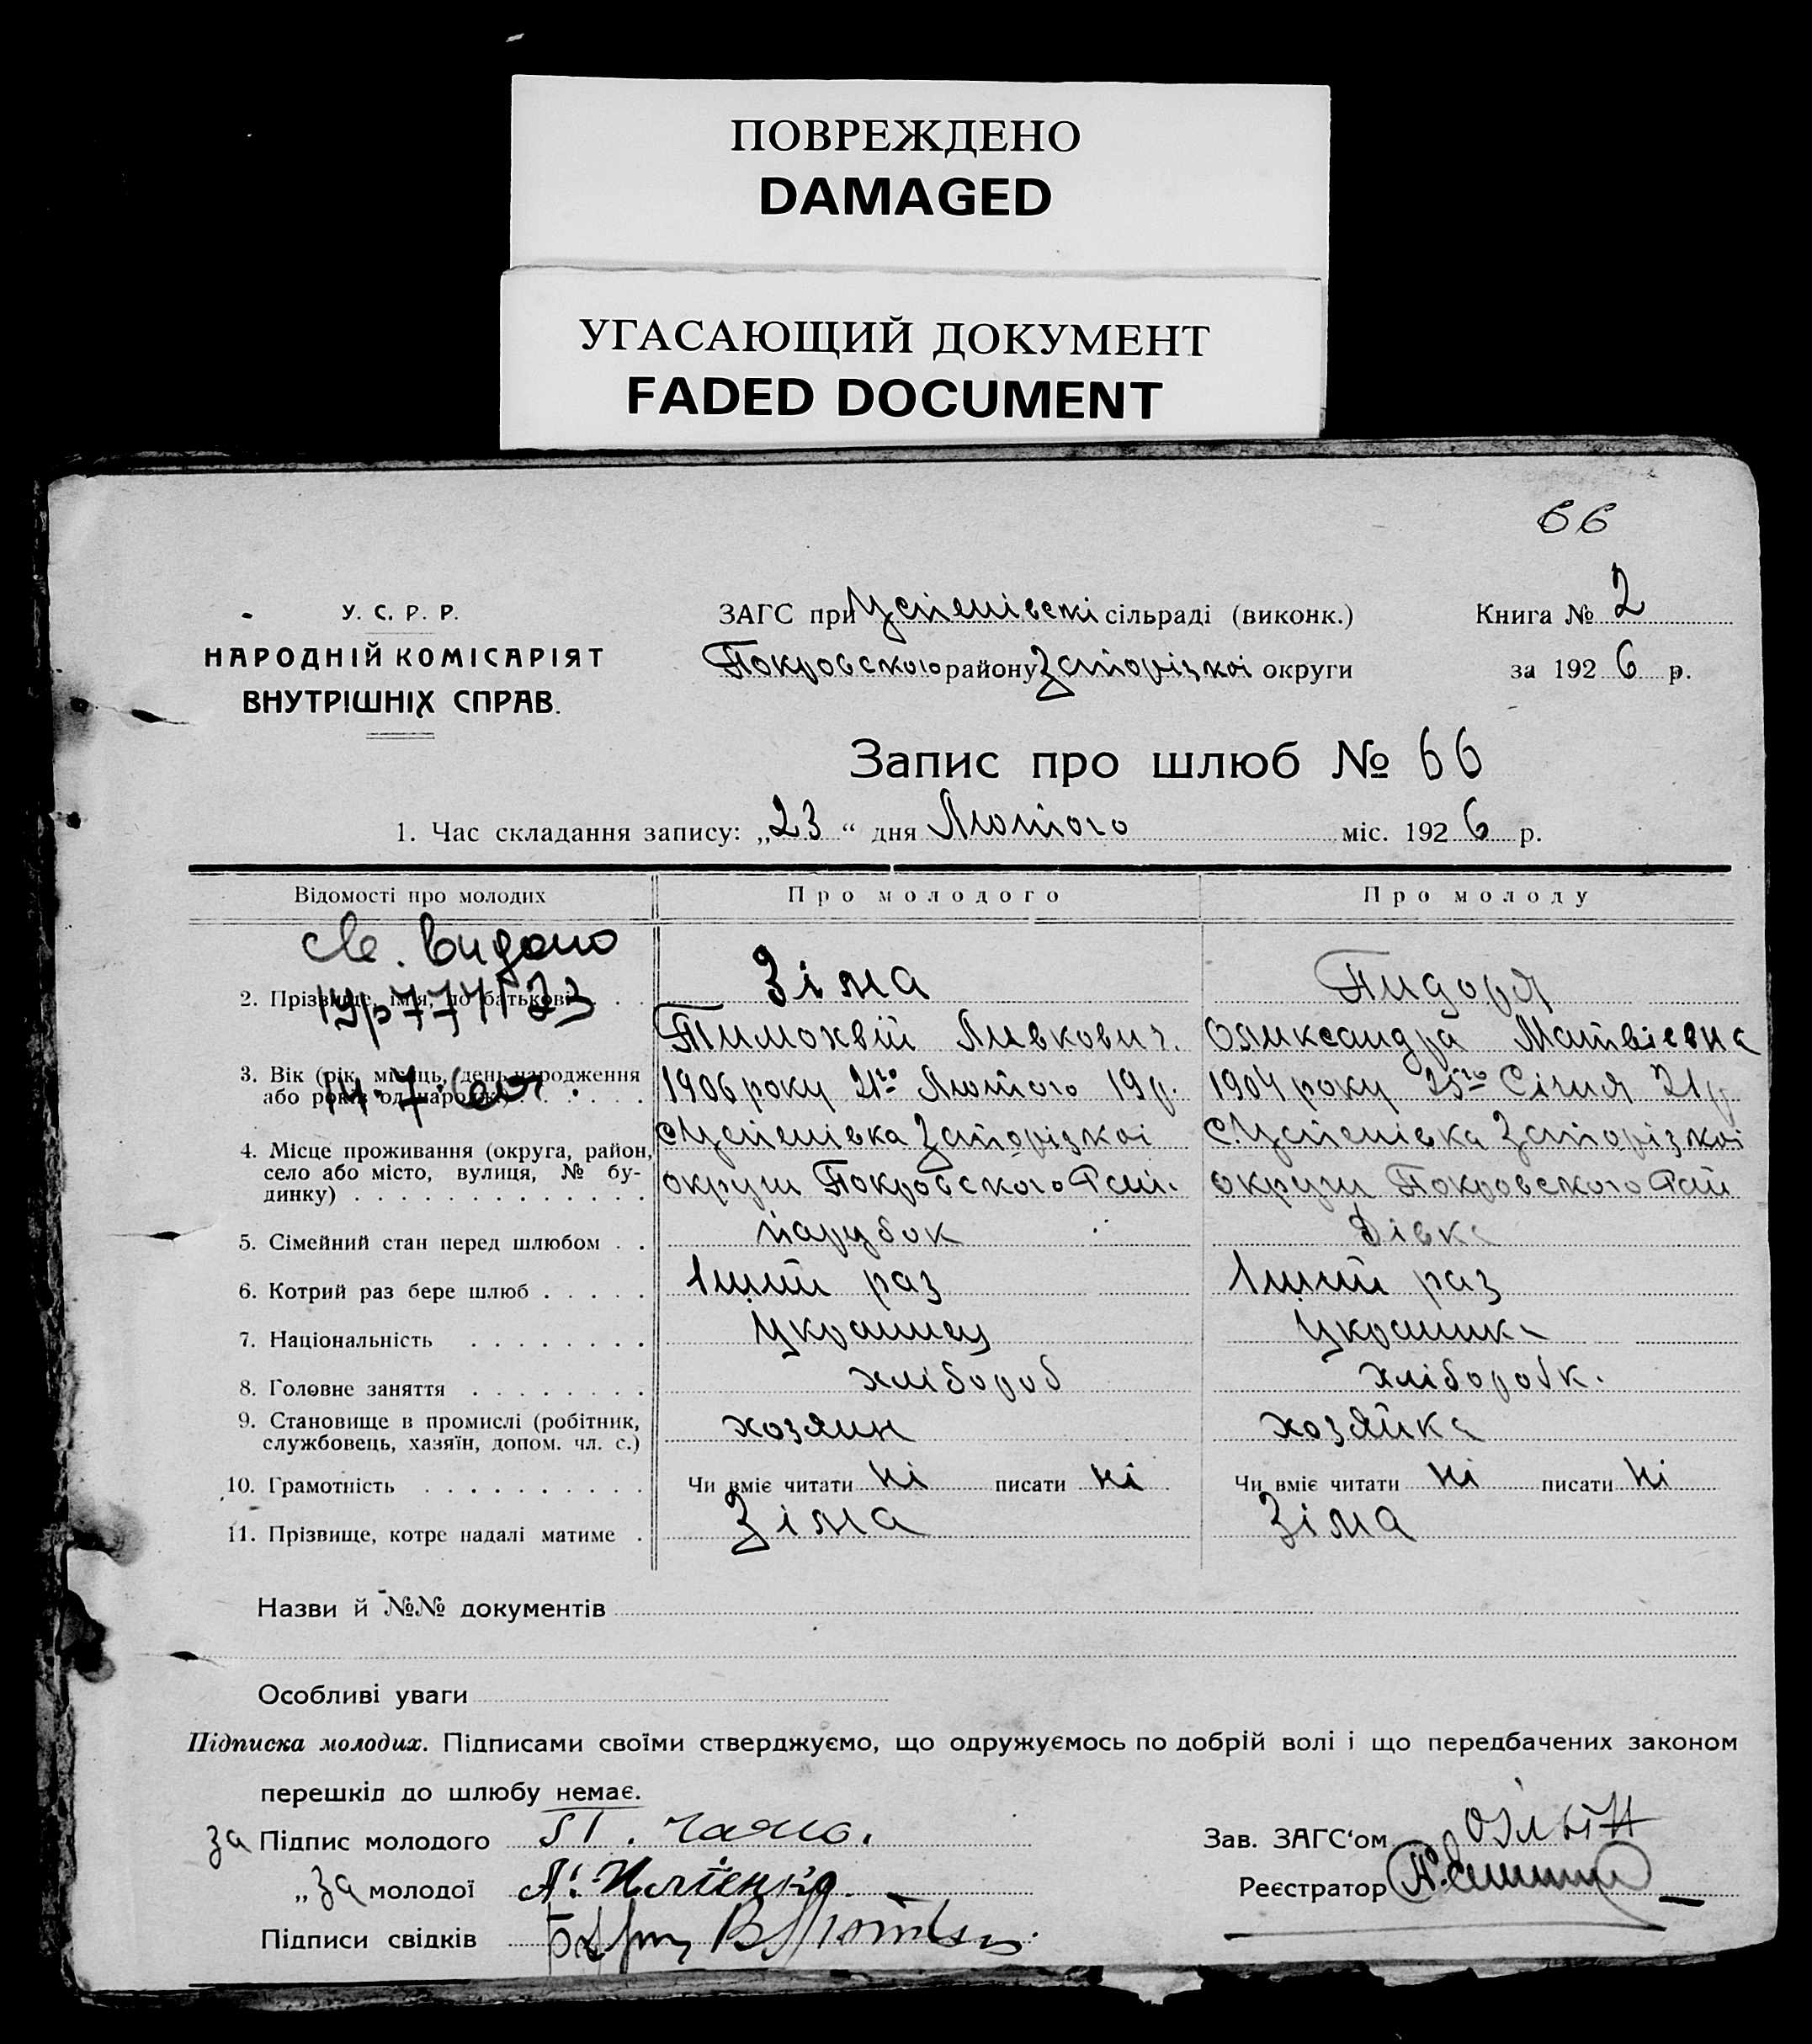 ПОВРЕЖДЕНО
DAMAGED
УГАСАЮЩИЙ ДОКУМЕНТ
FADED DOCUMENT
66
У. С. Р. Р.
НАРОДНІЙ КОМІСАРІЯТ
ВНУТРІШНІХ СПРАВ.
ЗАГС при Успенівскі сільраді (виконк.)
Покровского району Запорізкоі округи
Книга № 2
за 1926 р.
Запис про шлюб № 66
1. Час складання запису: „23“ дня Лютого міс. 1926 р.
Відомості про молодих Про молодого Про молоду
Св. видано
2. Прізвище, ім'я, по батькові Зіма Пидоря
Тимохвій Ливкович. Оликсандра Матвієвна
3. Вік (рік, місяць, день народження або років од народж.) 1906 року 21го Лютого 19р. 1904 року 25го Січня 21р
4. Місце проживання (округа, район, село або місто, вулиця, № будинку) с Успенівка Запорізкоі с. Успенівка Запорізкоі
округи Покровского Рай. округи Покровского Рай
5. Сімейний стан перед шлюбом парубок Дівка
6. Котрий раз бере шлюб 1ший раз 1ший раз
7. Національність Украинец Украинка
8. Головне заняття хлібороб хліборобк.
9. Становище в промислі (робітник, службовець, хазяїн, допом. чл. с.) хозяин хозяйка
10. Грамотність Чи вміє читати ні писати ні Чи вміє читати ні писати ні
11. Прізвище, котре надалі матиме Зіма Зіма
Назви й №№ документів
Особливі уваги
Підписка молодих. Підписами своїми стверджуємо, що одружуємось по добрій волі і що передбачених законом
перешкід до шлюбу немає.
за Підпис молодого
„ за молодої А. Ильенко
Підписи свідків
Зав. ЗАГС'ом
Реєстратор